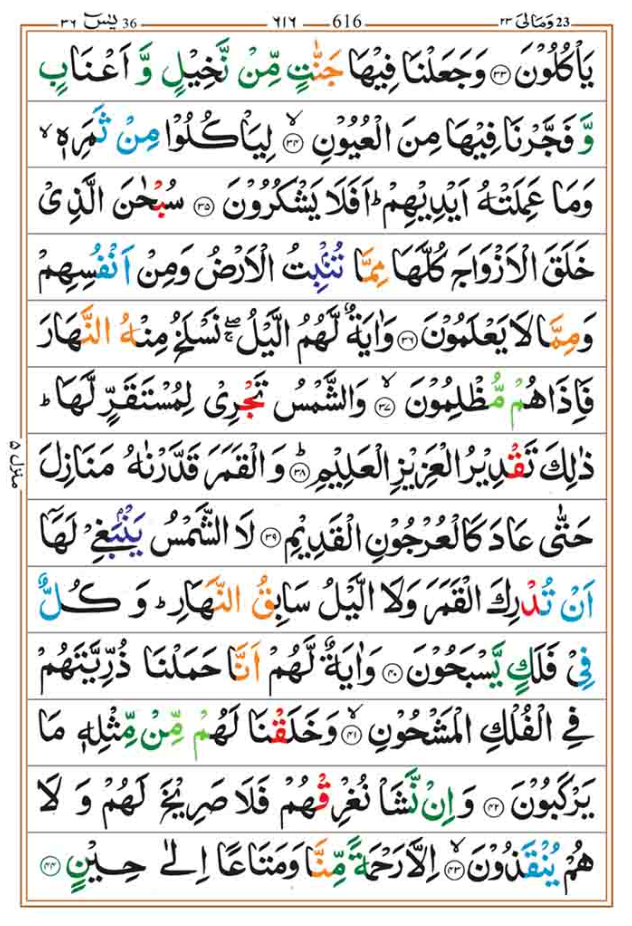 یٰسٓ 36 ٣٦ ٦١٦ 616 وَمَالِیَ 23 ٢٣
یَاْكُلُوْنَ ۝٣٣ وَ جَعَلْنَا فِیْهَا جَنّٰتٍ مِّنْ نَّخِیْلٍ وَّ اَعْنَابٍ
وَّ فَجَّرْنَا فِیْهَا مِنَ الْعُیُوْنِ ۝٣٤ۙ لِیَاْكُلُوْا مِنْ ثَمَرِهٖۙ
وَمَا عَمِلَتْهُ اَیْدِیْهِمْؕ اَفَلَا یَشْكُرُوْنَ ۝٣٥ سُبْحٰنَ الَّذِیْ
خَلَقَ الْاَزْوَاجَ كُلَّهَا مِمَّا تُنْۢبِتُ الْاَرْضُ وَمِنْ اَنْفُسِهِمْ
وَمِمَّا لَا یَعْلَمُوْنَ ۝٣٦ وَاٰیَةٌ لَّهُمُ الَّیْلُ ۖۚ نَسْلَخُ مِنْهُ النَّهَارَ
فَاِذَا هُمْ مُّظْلِمُوْنَ ۝٣٧ۙ وَالشَّمْسُ تَجْرِیْ لِمُسْتَقَرٍّ لَّهَاؕ
ذٰلِكَ تَقْدِیْرُ الْعَزِیْزِ الْعَلِیْمِ ۝٣٨ؕ وَ الْقَمَرَ قَدَّرْنٰهُ مَنَازِلَ
حَتّٰى عَادَ كَالْعُرْجُوْنِ الْقَدِیْمِ ۝٣٩ لَا الشَّمْسُ یَنْۢبَغِیْ لَهَاۤ
اَنْ تُدْرِكَ الْقَمَرَ وَلَا الَّیْلُ سَابِقُ النَّهَارِؕ وَ كُلٌّ
فِیْ فَلَكٍ یَّسْبَحُوْنَ ۝٤٠ وَاٰیَةٌ لَّهُمْ اَنَّا حَمَلْنَا ذُرِّیَّتَهُمْ
فِی الْفُلْكِ الْمَشْحُوْنِ ۝٤١ۙ وَخَلَقْنَا لَهُمْ مِّنْ مِّثْلِهٖ مَا
یَرْكَبُوْنَ ۝٤٢ وَاِنْ نَّشَاْ نُغْرِقْهُمْ فَلَا صَرِیْخَ لَهُمْ وَ لَا
هُمْ یُنْقَذُوْنَ ۝٤٣ۙ اِلَّا رَحْمَةً مِّنَّا وَمَتَاعًا اِلٰى حِیْنٍ ۝٤٤
منزل ٥